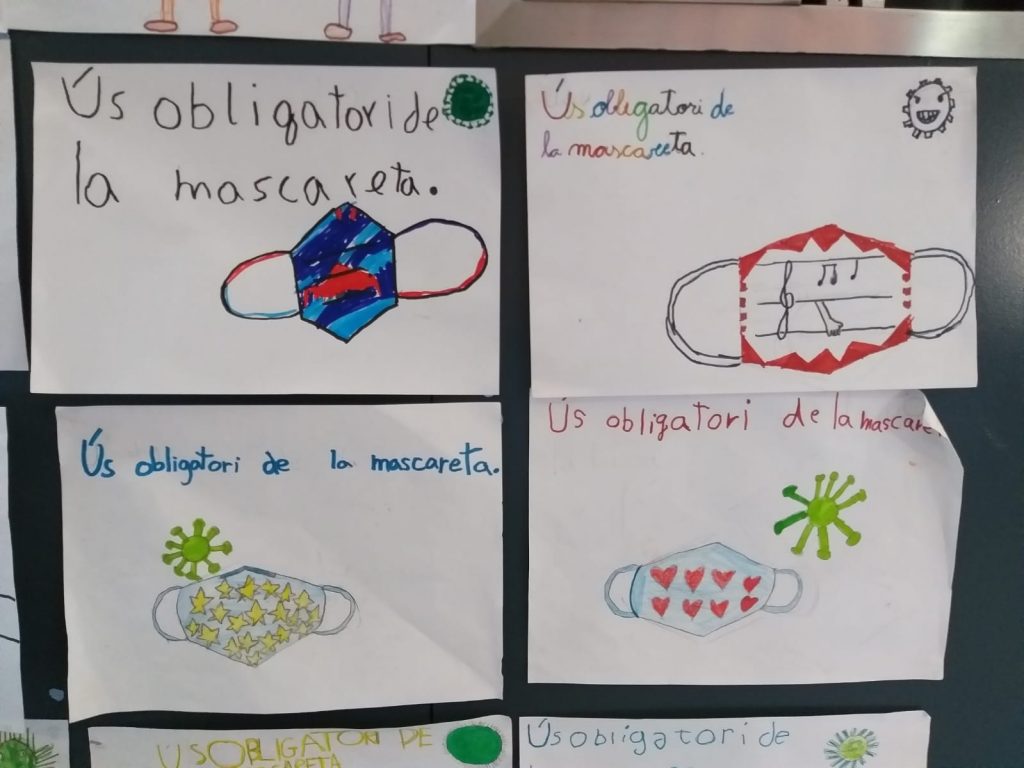 Ús obligatori de
la mascareta.
Ús obligatori de
la mascareta.
Ús obligatori de la mascareta.
Ús obligatori de la mascare
ÚS OBLIGATORI DE
Ús obligatori de